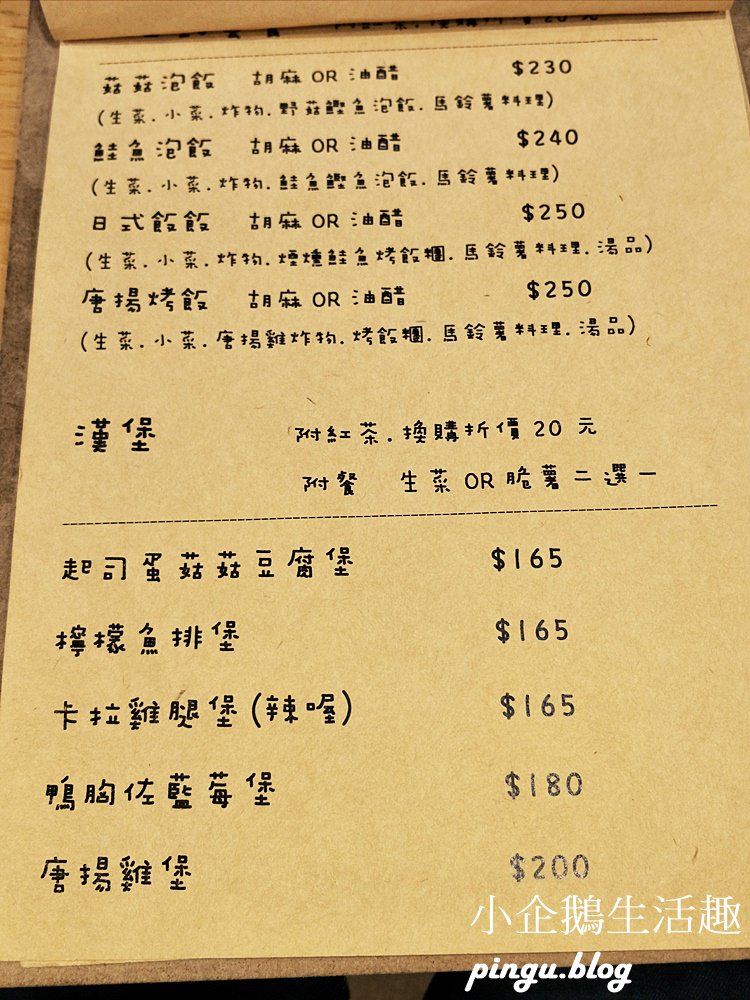 菇菇泡飯 胡麻 OR 油醋 $230
(生菜.小菜.炸物.野菇鰹魚泡飯.馬鈴薯料理)
鮭魚泡飯 胡麻 OR 油醋 $240
(生菜.小菜.炸物.鮭魚鰹魚泡飯.馬鈴薯料理)
日式飯飯 胡麻 OR 油醋 $250
(生菜.小菜.炸物.煙燻鮭魚烤飯糰.馬鈴薯料理.湯品)
唐揚烤飯 胡麻 OR 油醋 $250
(生菜.小菜.唐揚雞炸物.烤飯糰.馬鈴薯料理.湯品)
漢堡 附紅茶.換購折價 20 元
附餐 生菜 OR 脆薯二選一
起司蛋菇菇豆腐堡 $165
檸檬魚排堡 $165
卡拉雞腿堡(辣喔) $165
鴨胸佐藍莓堡 $180
唐揚雞堡 $200
小企鵝生活趣
pingu.blog